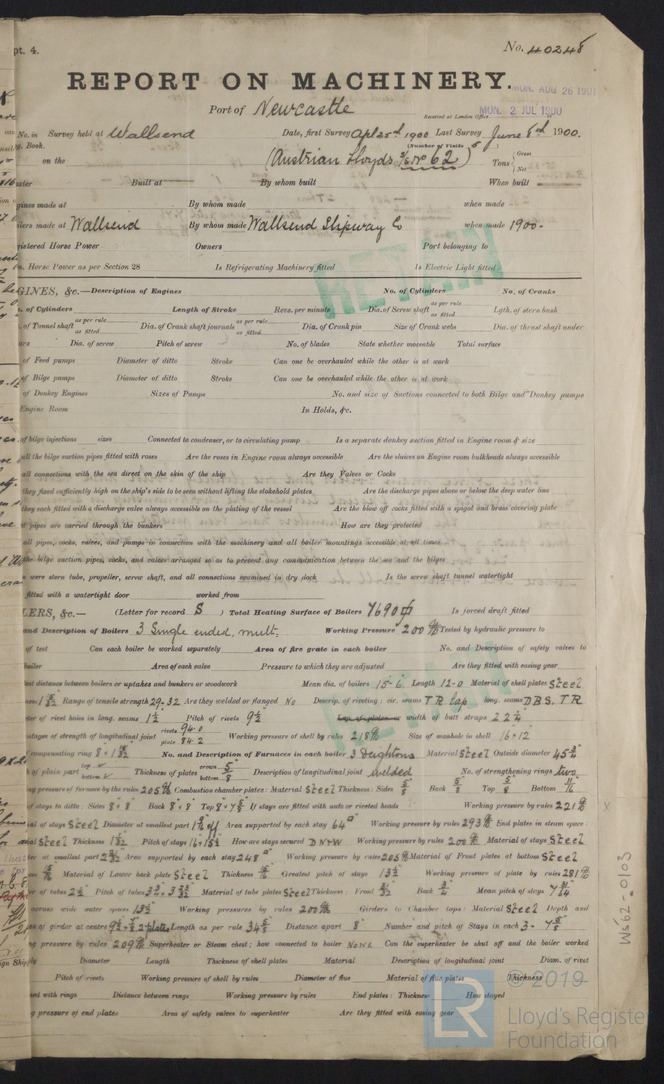 pt. 4.
No. 40248
REPORT ON MACHINERY.
MON. AUG 26 1901
Port of Newcastle
Received at London Office
MON. 2 JUL 1900
No. in Survey held at Wallsend Date, first Survey Apl 25th 1900 Last Survey June 8th 1900.
Book. (Number of Visits 5)
on the (Austrian Lloyds S/S No 62) Tons Gross Net
Built at By whom built When built
gines made at By whom made when made
lers made at Wallsend By whom made Wallsend Slipway Co when made 1900-
istered Horse Power Owners Port belonging to
Horse Power as per Section 28 Is Refrigerating Machinery fitted Is Electric Light fitted
RETAIN
GINES, &c.—Description of Engines No. of Cylinders No. of Cranks
of Cylinders Length of Stroke Revs. per minute Dia. of Screw shaft as per rule as fitted Lgth. of stern bush
of Tunnel shaft as per rule as fitted Dia. of Crank shaft journals as per rule as fitted Dia. of Crank pin Size of Crank webs Dia. of thrust shaft under
ars Dia. of screw Pitch of screw No. of blades State whether moveable Total surface
of Feed pumps Diameter of ditto Stroke Can one be overhauled while the other is at work
of Bilge pumps Diameter of ditto Stroke Can one be overhauled while the other is at work
of Donkey Engines Sizes of Pumps No. and size of Suctions connected to both Bilge and Donkey pumps
Engine Room In Holds, &c.
of bilge injections sizes Connected to condenser, or to circulating pump Is a separate donkey suction fitted in Engine room & size
all the bilge suction pipes fitted with roses Are the roses in Engine room always accessible Are the sluices on Engine room bulkheads always accessible
all connections with the sea direct on the skin of the ship Are they Valves or Cocks
they fixed sufficiently high on the ship's side to be seen without lifting the stokehold plates Are the discharge pipes above or below the deep water line
they each fitted with a discharge valve always accessible on the plating of the vessel Are the blow off cocks fitted with a spigot and brass covering plate
pipes are carried through the bunkers How are they protected
all pipes, cocks, valves, and pumps in connection with the machinery and all boiler mountings accessible at all times
the bilge suction pipes, cocks, and valves arranged so as to prevent any communication between the sea and the bilges
were stern tube, propeller, screw shaft, and all connections examined in dry dock Is the screw shaft tunnel watertight
fitted with a watertight door worked from
LERS, &c.— (Letter for record S) Total Heating Surface of Boilers 7690 Is forced draft fitted
and Description of Boilers 3 Single ended, mult. Working Pressure 200 Tested by hydraulic pressure to
of test Can each boiler be worked separately Area of fire grate in each boiler No. and Description of safety valves to
boiler Area of each valve Pressure to which they are adjusted Are they fitted with easing gear
distance between boilers or uptakes and bunkers or woodwork Mean dia. of boilers 15-6 Length 12-0 Material of shell plates Steel
Range of tensile strength 29-32 Are they welded or flanged No Descrip. of riveting: cir. seams TR lap long. seams DBS. TR
of rivet holes in long. seams 1½ Pitch of rivets 9½ width of butt straps 22¼
of strength of longitudinal joint rivets 94.0 plate 84.2 Working pressure of shell by rules 218 Size of manhole in shell 16×12
compensating ring No. and Description of Furnaces in each boiler 3 Deightons Material Steel Outside diameter 45¾
of plain part top bottom Thickness of plates crown bottom Description of longitudinal joint welded No. of strengthening rings two
pressure of furnace by the rules 205 Combustion chamber plates: Material Steel Thickness: Sides Back Top Bottom
of stays to ditto: Sides 8×8 Back 8×8 Top If stays are fitted with nuts or riveted heads Working pressure by rules 221
of stays Steel Diameter at smallest part Area supported by each stay 64 Working pressure by rules 293 End plates in steam space:
Steel Thickness Pitch of stays How are stays secured DN+W Working pressure by rules 200 Material of stays Steel
at smallest part Area supported by each stay 248 Working pressure by rules 205 Material of Front plates at bottom Steel
Material of Lower back plate Steel Thickness Greatest pitch of stays 13½ Working pressure of plate by rules 281
of tubes 2½ Pitch of tubes Material of tube plates Steel Thickness: Front Back Mean pitch of stays
across wide water spaces 13½ Working pressures by rules 200 Girders to Chamber tops: Material Steel Depth and
of girder at centre 2 plates Length as per rule Distance apart 8 Number and pitch of Stays in each 3-
pressure by rules 209 Superheater or Steam chest; how connected to boiler None Can the superheater be shut off and the boiler worked
Diameter Length Thickness of shell plates Material Description of longitudinal joint Diam. of rivet
Pitch of rivets Working pressure of shell by rules Diameter of flue Material of flue plates Thickness
with rings Distance between rings Working pressure by rules End plates: Thickness How stayed
pressure of end plates Area of safety valves to superheater Are they fitted with easing gear
W562-0103
© 2019
LR
Lloyd's Register
Foundation